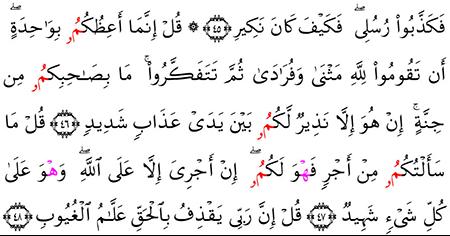 فَكَذَّبُوا۟ رُسُلِىۖ فَكَيْفَ كَانَ نَكِيرِ ﴿٤٥﴾ ۞ قُلْ إِنَّمَآ أَعِظُكُمُۥ بِوَٰحِدَةٍۖ
أَن تَقُومُوا۟ لِلَّهِ مَثْنَىٰ وَفُرَٰدَىٰ ثُمَّ تَتَفَكَّرُوا۟ۚ مَا بِصَاحِبِكُمُۥ مِن
جِنَّةٍۚ إِنْ هُوَ إِلَّا نَذِيرٌ لَّكُمُۥ بَيْنَ يَدَىْ عَذَابٍ شَدِيدٍ ﴿٤٦﴾ قُلْ مَا
سَأَلْتُكُمُۥ مِنْ أَجْرٍ فَهْوَ لَكُمُۥۖ إِنْ أَجْرِىَ إِلَّا عَلَى ٱللَّهِۖ وَهْوَ عَلَىٰ
كُلِّ شَىْءٍ شَهِيدٌ ﴿٤٧﴾ قُلْ إِنَّ رَبِّى يَقْذِفُ بِٱلْحَقِّ عَلَّٰمُ ٱلْغُيُوبِ ﴿٤٨﴾